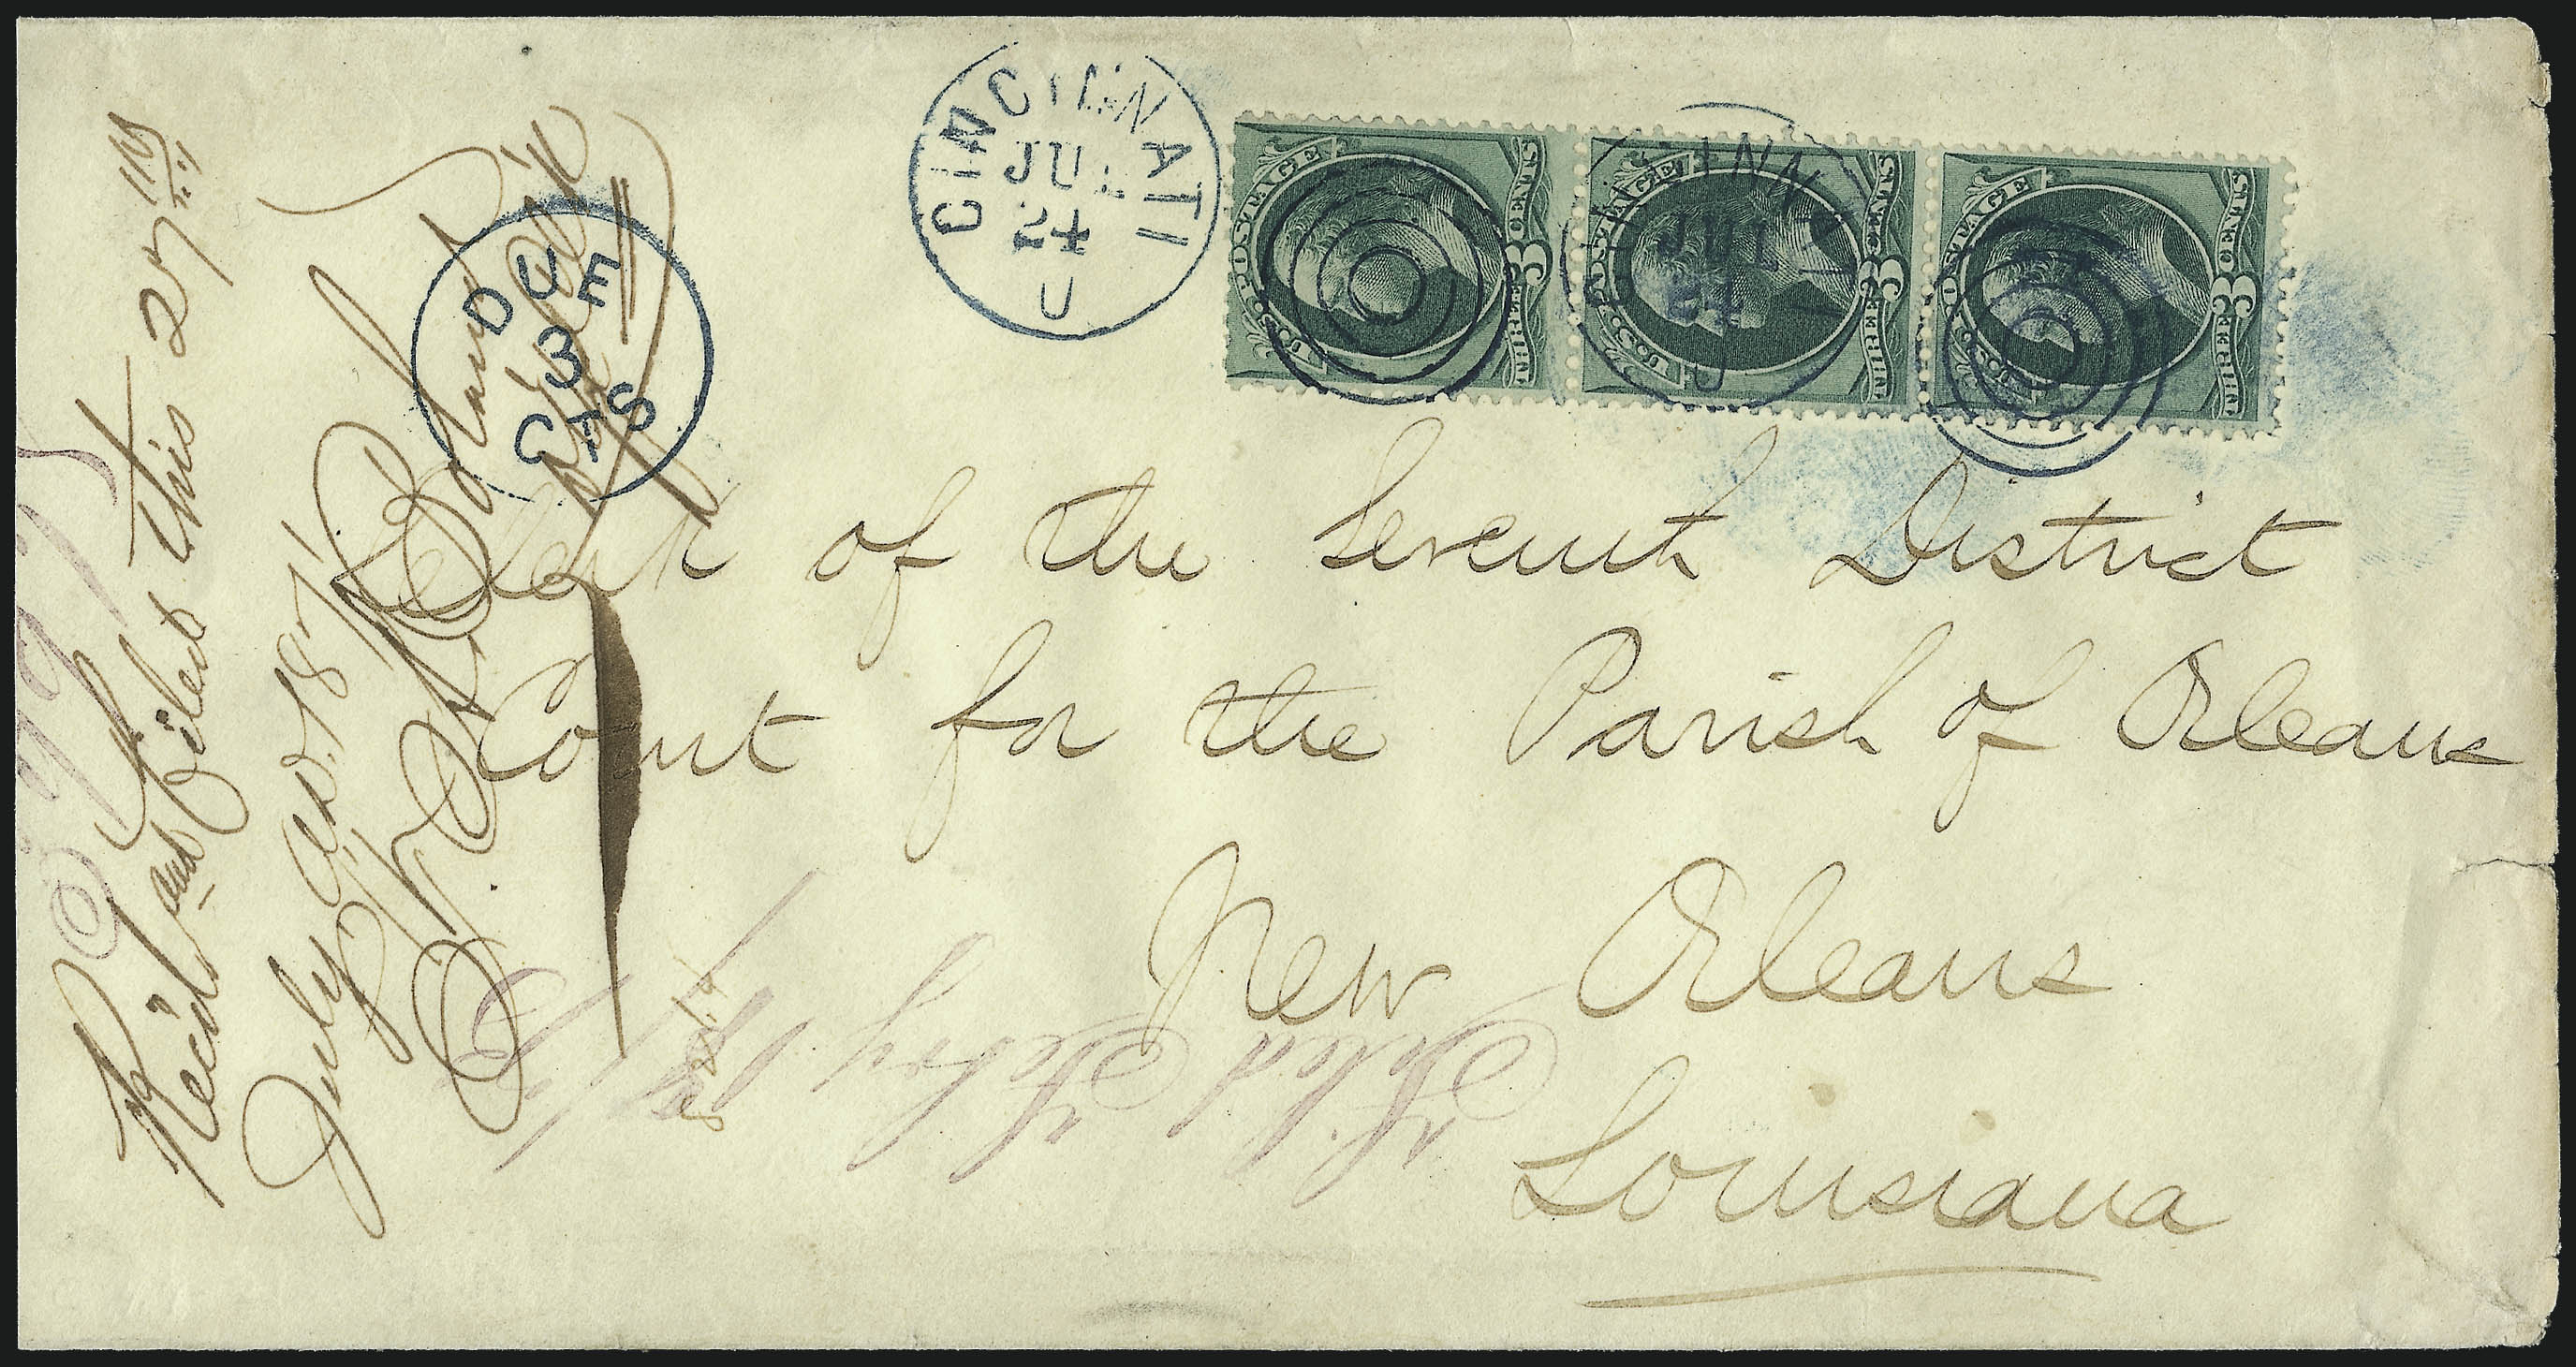 CINCINNATI
JUL
24
U
DUE
3
CTS
U.S. POSTAGE
THREE 3 CENTS
U.S. POSTAGE
THREE 3 CENTS
U.S. POSTAGE
THREE 3 CENTS
CINCINNATI
JUL
24
U
Clerk of the Seventh District
Court for the Parish of Orleans
New Orleans
Louisiana
Rec'd and Filed this 27th
July A.D. 1871
Filed Feby